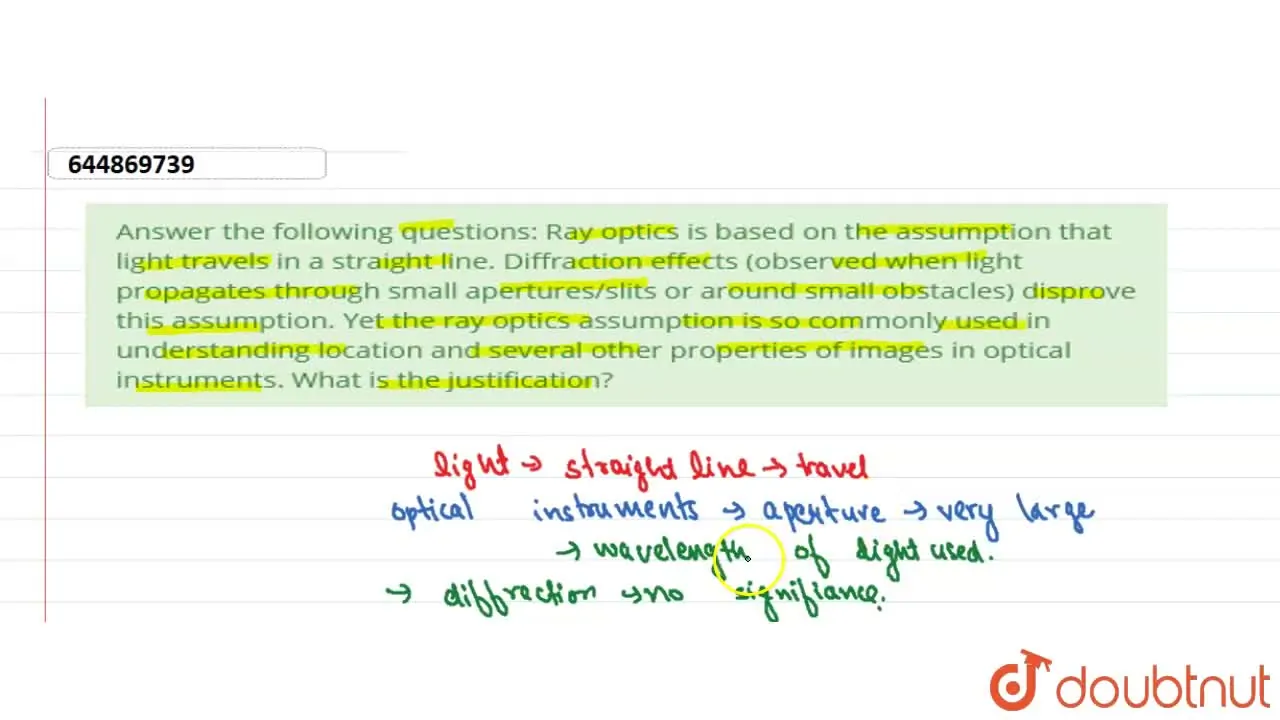 644869739
Answer the following questions: Ray optics is based on the assumption that
light travels in a straight line. Diffraction effects (observed when light
propagates through small apertures/slits or around small obstacles) disprove
this assumption. Yet the ray optics assumption is so commonly used in
understanding location and several other properties of images in optical
instruments. What is the justification?
light → straight line → travel
optical instruments → aperture → very large
→ wavelength of light used.
→ diffraction → no signifiance.
doubtnut